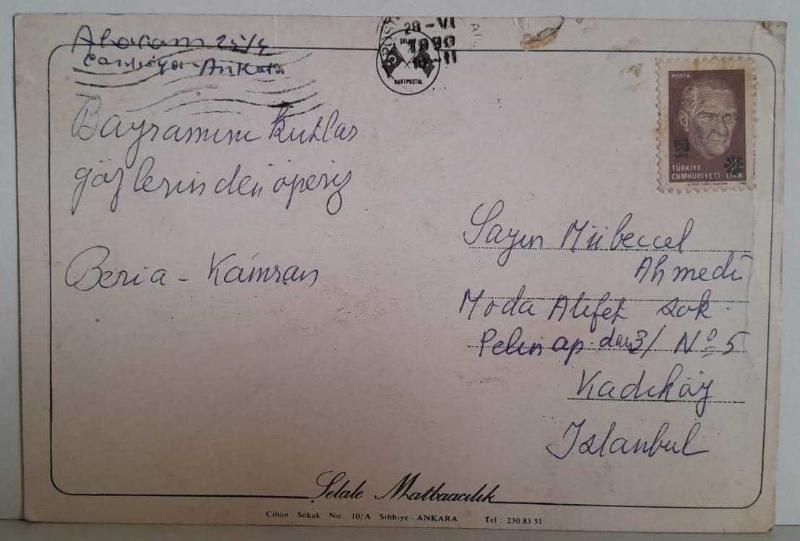 Aharam 25/4
Ankara
28-VI
1990
KARTPOSTAL
POSTA
TÜRKİYE
CUMHURİYETİ LİRA
Bayramını kutlar
gözlerinden öperiz
Beria - Kamran
Sayın Mübeccel
Ahmedi
Moda Atıfet sok.
Pelin ap. 3/ No 5
Kadıköy
Istanbul
Şelale Matbaacılık
Cihan Sokak No. 10/A Sıhhiye - ANKARA Tel : 230 83 51